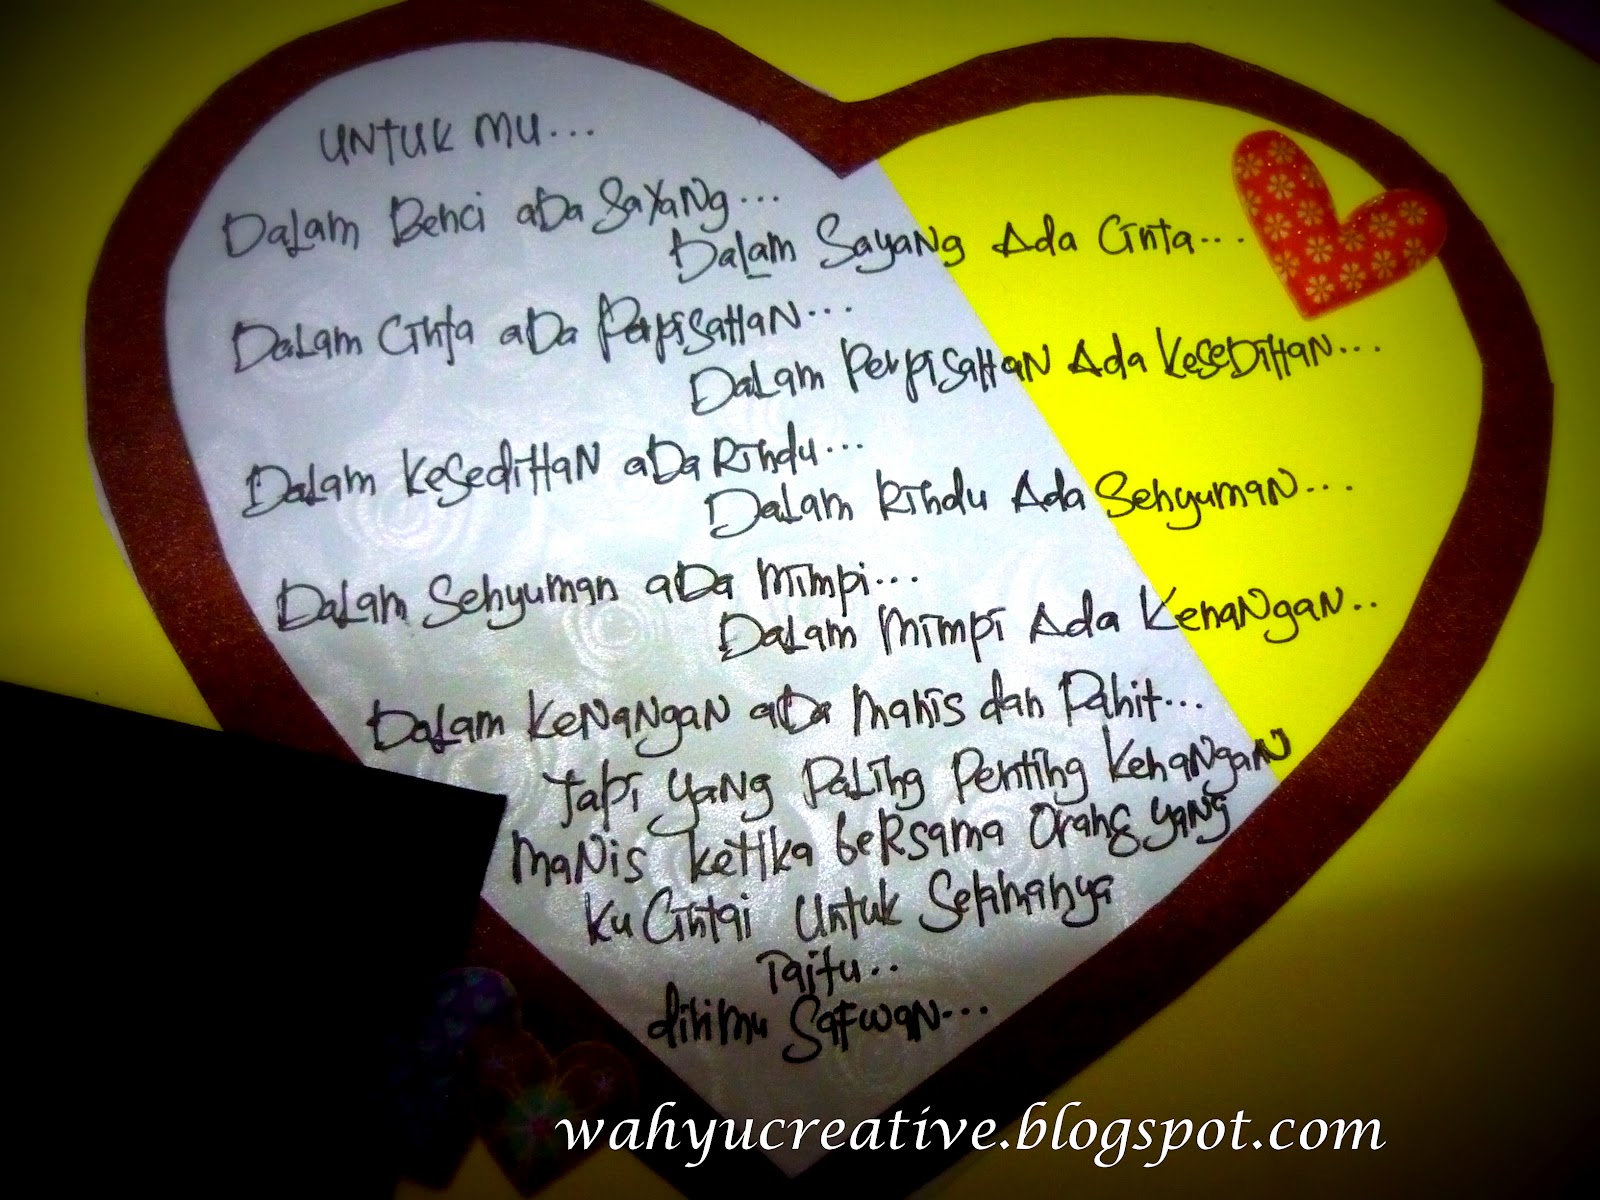 UNTUK MU...
DaLam Benci aDa SaYaNg...
DaLam SayaNg Ada Cinta...
DaLam Cinta aDa PerpisaHaN...
DaLam PerpisaHaN Ada KeseDiHaN...
DaLam KesediHaN aDa Rindu...
DaLam Rindu Ada SenyumaN...
DaLam Senyuman aDa Mimpi...
DaLam Mimpi Ada KenaNgaN..
DaLam KeNaNgaN aDa Manis dan Pahit...
Tapi yaNg PaLing Penting KenaNgaN
MaNis ketika beRsama Orang yaNg
Ku Cintai Untuk Selamanya
Iaitu..
dirimu SaFwaN...
wahyucreative.blogspot.com